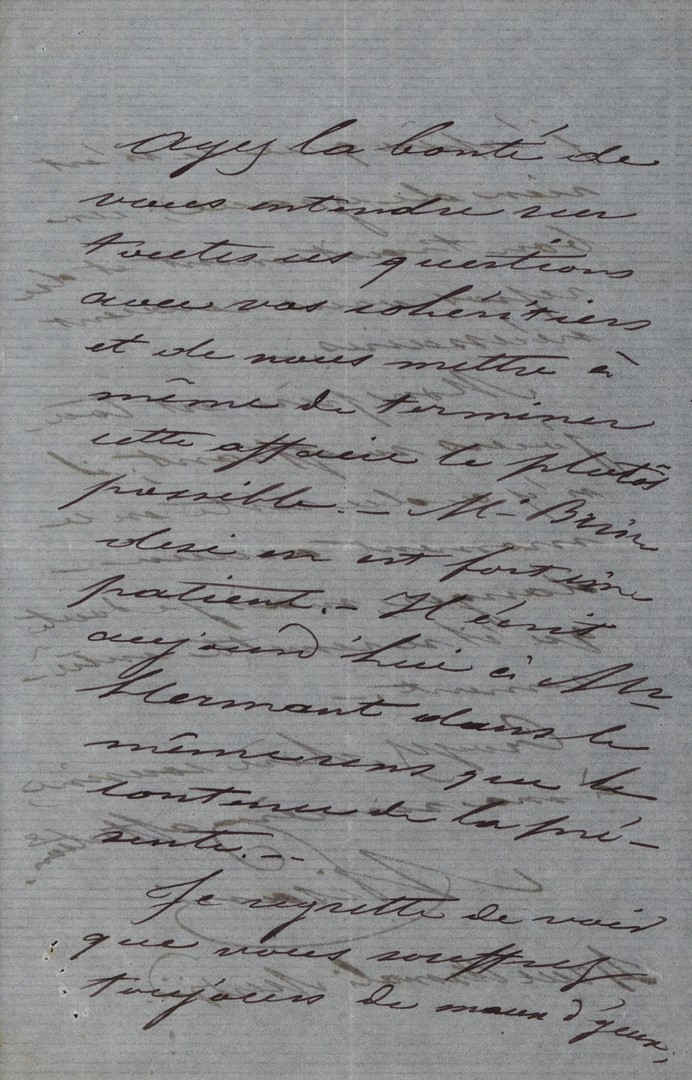 Ayez la bonté de
vous entendre sur
toutes ces questions
avec vos cohéritiers
et de nous mettre à
même de terminer
cette affaire le plutôt
possible. – Mr
desi en est fort im
patient. – Il écrit
aujourd'hui à Mr
Hermant dans le
même sens que le
contenu de la pré-
sente. –
Je regrette de voir
que vous souffrez
toujours de maux d'yeux,